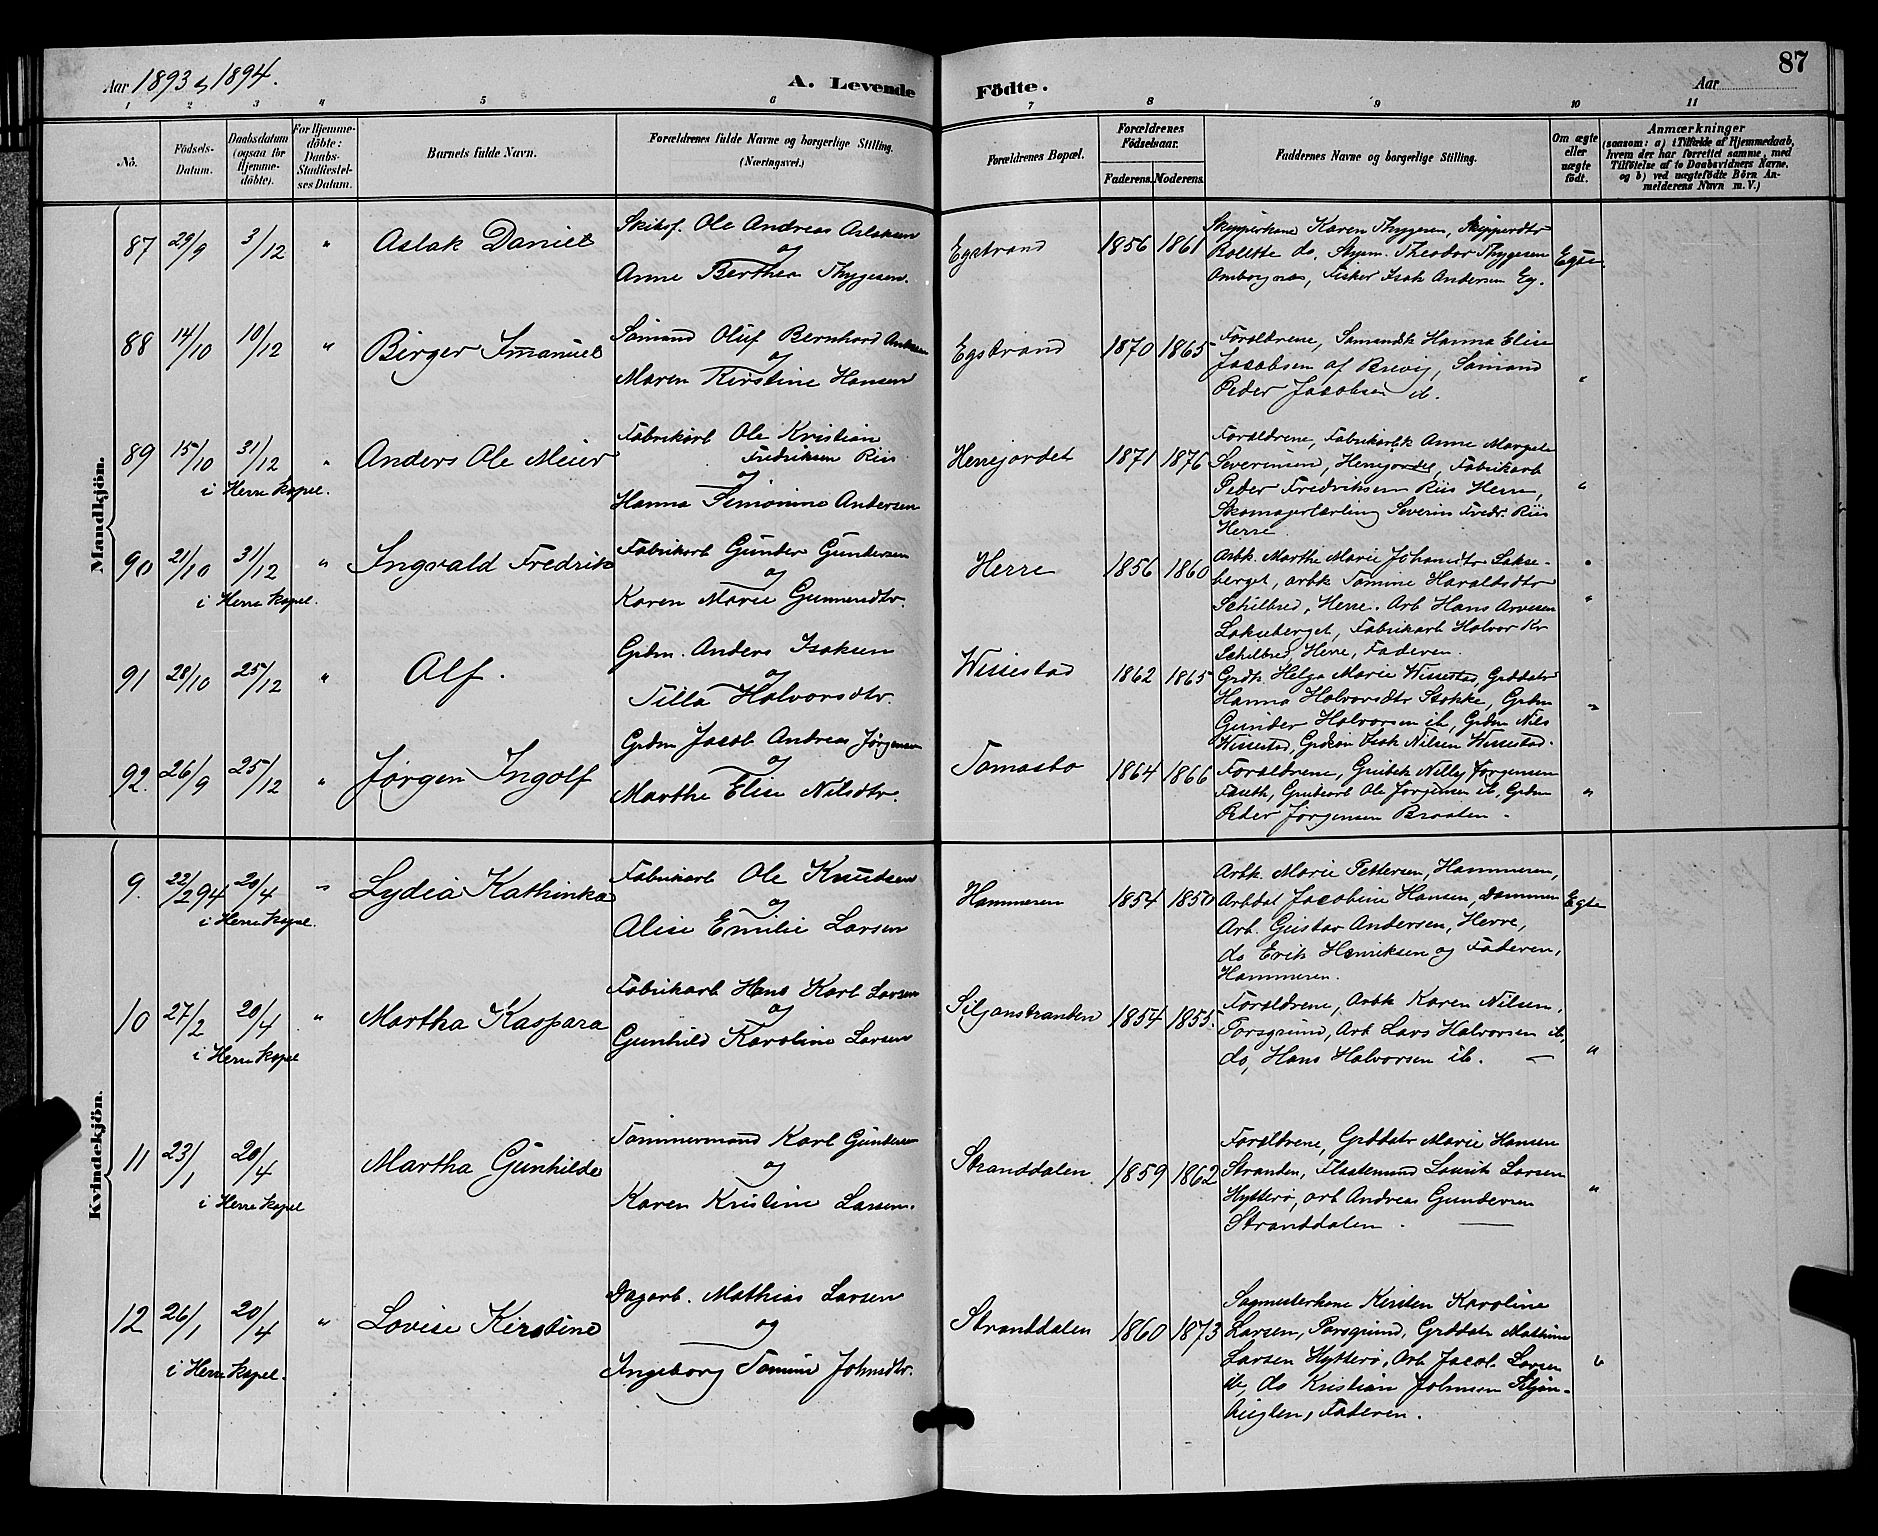 Aar 1893 & 1894.
A. Levende Födte.
Aar
87
1 2 3 4 5 6 7 8 9 10 11
No.
Födsels-Datum.
Daabsdatum (ogsaa for Hjemmedöbte).
For Hjemmedöbte: Daabs-Stadfæstelses Datum.
Barnets fulde Navn.
Forældrenes fulde Navne og borgerlige Stilling. (Næringsvei.)
Forældrenes Bopæl.
Forældrenes Födselsaar.
Faderens. Moderens.
Faddernes Navne og borgerlige Stilling.
Om ægte eller uægte födt.
Anmærkninger
(saasom: a) i Tilfælde af Hjemmedaab, hvem der har forrettet samme, med Tilföielse af to Daabsvidners Navne, og b) ved uægtefödte Börn Anmelderens Navn m. V.)
Mandkjön.
87 29/9 3/12 " Aslak Daniel
Skibsf. Ole Andreas Aslaksen
og
Anne Berthea Thygesen.
Egstrand 1856 1861
Skipperkone Karen Thygesen, Skipperdtr
Bolette do, Styrm. Theodor Thygesen
Omborgnæs, Fisker Isak Andersen Eg.
Egte
88 14/10 10/12 " Birger Imanuel
Sømand Oluf Bernhard Andersen
og
Maren Kirstine Hansen
Egstrand 1870 1865
Forældrene, Sømandsk Hanna Elise
Jacobsen af Brevig, Sømand
Peder Jacobsen ib.
"
89 15/10 31/12 " Anders Ole Meier
i Herre kapel.
Fabrikarb Ole Kristian
Fredriksen Riis
og
Hanna Simonine Andersen
Herrejordet 1871 1876
Forældrene, Fabrikarbk Anne Margete
Severinsen, Herrejordet, Fabrikarb
Peder Fredriksen Riis Herre,
Skomagerlærling Severin Fredr. Riis
Herre
"
90 21/10 31/12 " Ingvald Fredrik
i Herre kapel.
Fabrikarb Gunder Gundersen
og
Karen Marie Gunnersdtr.
Herre 1856 1860
Arbk. Marthe Marie Johansdtr Lakse-
berget, arbk Tomine Haraldsdtr
Schilbred, Herre. Arb Hans Arvesen
Lakseberget, Fabrikarb Halvor Kr
Schilbred Herre, Faderen.
"
91 28/10 25/12 " Alf.
Grdm. Anders Isaksen
og
Tilla Halvorsdtr.
Wissestad 1862 1865
Grdk. Helga Marie Wissestad, Grddatr
Hanna Halvorsdtr Stokke, Grdm
Gunder Halvorsen ib, Grdm Nils
Wissestad, Grdsøn Isak Nilsen Wissestad.
"
92. 26/9 25/12 " Jørgen Ingolf
Grdm Jacob Andreas Jørgensen
og
Marthe Elise Nilsdtr.
Tomasbo 1864 1866
Forældrene, Nilly Jørgensen
Ole Jørgensen ib, Grdm
Peder Jørgensen Braaten.
"
Kvindekjön.
9. 22/2 94 20/4 " Lydia Kathinka
i Herre kapel.
Fabrikarb Ole Knudsen
og
Alise Emilie Larsen
Hammeren 1854 1850
Arbk. Marie Pettersen, Hammeren,
Arbdat Jacobine Hansen, Dammen
Arb. Gustav Andersen, Herre,
do Erik Henriksen og Faderen,
Hammeren.
Egte
10 27/2 20/4 " Martha Kaspara
i Herre kapel
Fabrikarb Hans Karl Larsen
og
Gunhild Karoline Larsen
Siljanstranden 1854 1855.
Forældrene, Arbk Karen Nilsen,
Porsgrund, Arb Lars Halvorsen ib,
do, Hans Halvorsen ib.
"
11 23/1 20/4 Martha Gunhilde
i Herre kapel
Tømmermand Karl Gundersen
og
Karen Kristine Larsen.
Stranddalen 1859 1862
Forældrene, Grddatr Marie Hansen
Stranden, Larsen
Hytterø, arb Andreas Gundersen
Stranddalen.
"
12 26/1 20/4 " Lovise Kirstine
i Herre kapel.
Dagarb. Mathias Larsen
og
Ingeborg Tomine Johnsdtr.
Stranddalen 1860 1873
Sagmesterkone Kirsten Karoline
Larsen, Porsgrund, Grddatr Mathine
Larsen Hytterø, Arb Jacob Larsen
ib, do Kristian Johnsen
Faderen.
"